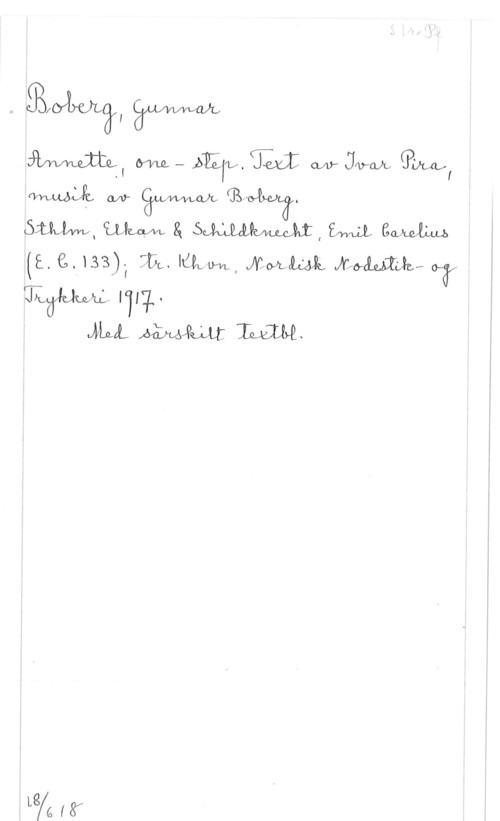 S1 r. Pf
Boberg, Gunnar
Annette, one-step. Text av Ivar Pira,
musik av Gunnar Boberg.
Sthlm, Elkan & Schildknecht, Emil Carelius
(E. C. 133); tr. Khvn, Nordisk Nodestik- og
Trykkeri 1917.
Med särskilt textbl.
L8/6 18